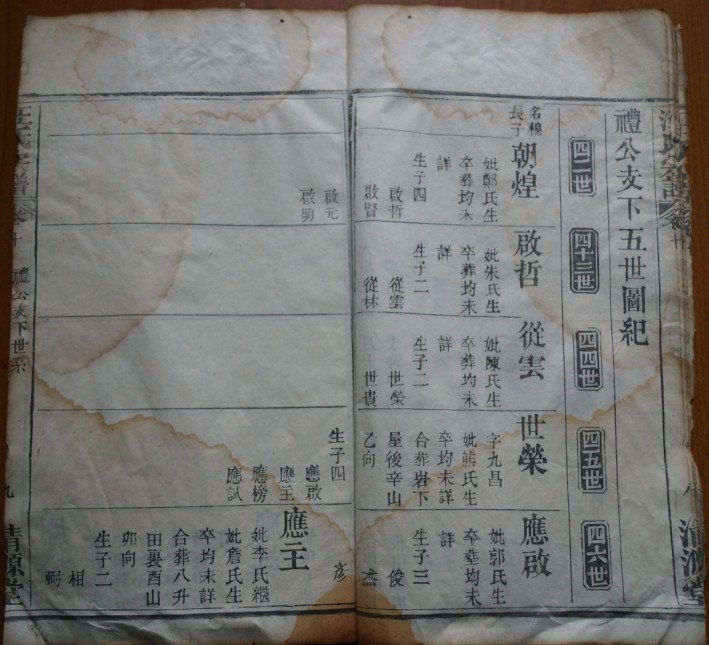 禮公支下五世圖紀
四二世
四十三世
四四世
四五世
四六世
名穆
長子
朝煌
妣鄭氏生
卒葬均未
詳
生子四
啟哲
啟賢
啟元
啟助
啟哲
妣朱氏生
卒葬均未
詳
生子二
從雲
從林
從雲
妣陳氏生
卒葬均未
詳
生子二
世榮
世貴
世榮
字九昌
妣熊氏生
卒均未詳
合葬岩下
屋後辛山
乙向
生子四
應啟
應主
應榜
應試
應啟
妣郭氏生
卒塟均未
詳
生子三
俊
杰
彦
應主
妣李氏繼
妣詹氏生
卒均未詳
合葬八升
田裏酉山
卯向
生子二
相
弼
卷十
禮公支下世系
九
清源堂